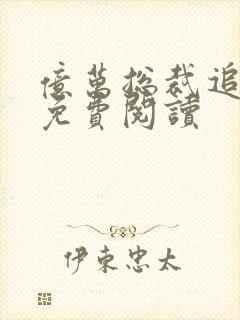 億萬総裁追
免費閱讀
伊東忠太